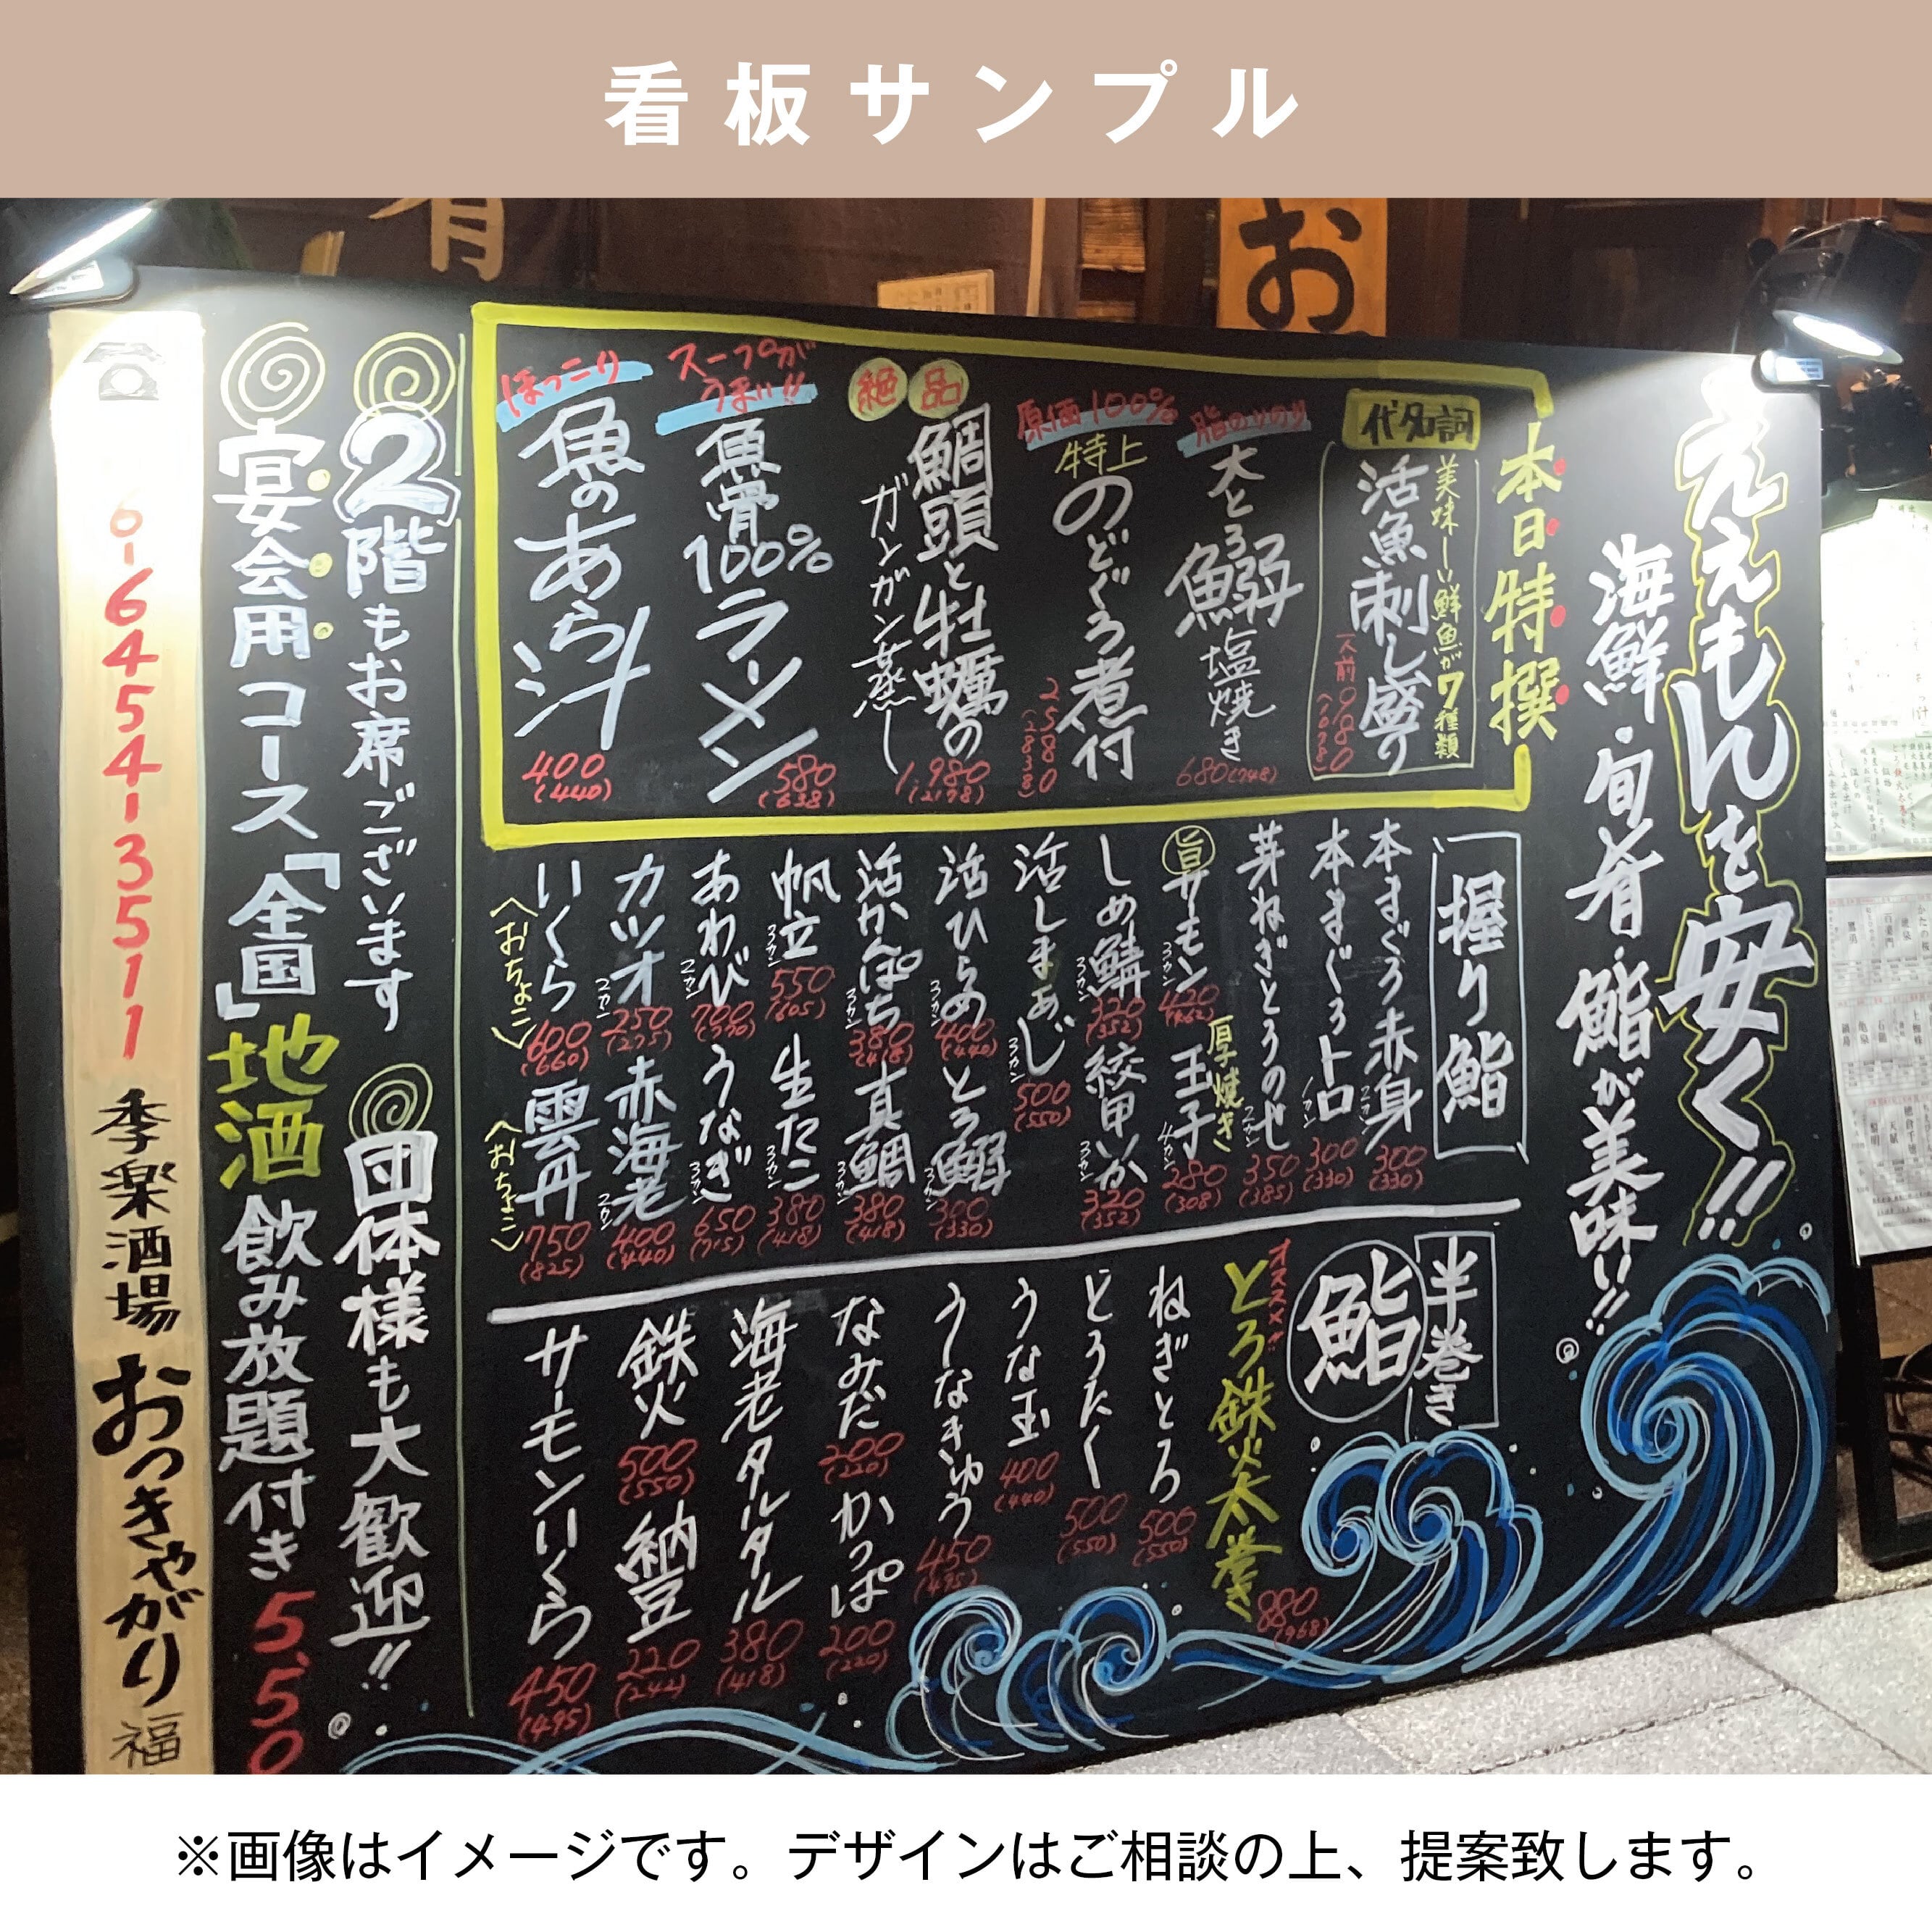 看板サンプル
ええもんを安く!!
海鮮・旬肴・鮨が美味い!!
本日特撰
代名詞
美味しい鮮魚が7種類
活魚刺し盛り
一人前 980 (1078)
脂のりのり
大とろ鰯塩焼き
680 (748)
原価100%
特上
のどぐろ煮付
2580 (2838)
絶品
鯛頭と牡蠣の
ガンガン蒸し
1,980 (2178)
スープが
うまい!!
魚骨100%ラーメン
580 (638)
ほっこり
魚のあら汁
400 (440)
握り鮨
本まぐろ赤身 2カン 300 (330)
本まぐろトロ 1カン 300 (330)
芽ねぎとろのせ 2カン 350 (385)
旨サーモン 3カン 420 (462)
厚焼き
玉子 4カン 280 (308)
しめ鯖 3カン 320 (352)
紋甲いか 3カン 320 (352)
活しまあじ 3カン 500 (550)
活ひらめ 3カン 400 (440)
とろ鰯 3カン 300 (330)
活かんぱち 3カン 380 (418)
真鯛 3カン 380 (418)
帆立 3カン 550 (605)
生たこ 3カン 380 (418)
あわび 2カン 700 (770)
うなぎ 3カン 650 (715)
カツオ 2カン 250 (275)
赤海老 2カン 400 (440)
いくら 600 (660)
(おちょこ)
雲丹 750 (825)
(おちょこ)
半巻き
鮨
オススメ!!
とろ鉄火太巻き 880 (968)
ねぎとろ 500 (550)
とろたく 500 (550)
うな玉 400 (440)
うーなきゅう 450 (495)
なみだ 200 (220)
かっぱ 200 (220)
海老タルタル 380 (418)
鉄火 500 (550)
納豆 220 (242)
サーモンいくら 450 (495)
2階もお席ございます
団体様も大歓迎!!
宴会用コース「全国」地酒飲み放題付き 5,50
6-6454-3511 季楽酒場 おっきゃがり 福
お
※画像はイメージです。デザインはご相談の上、提案致します。